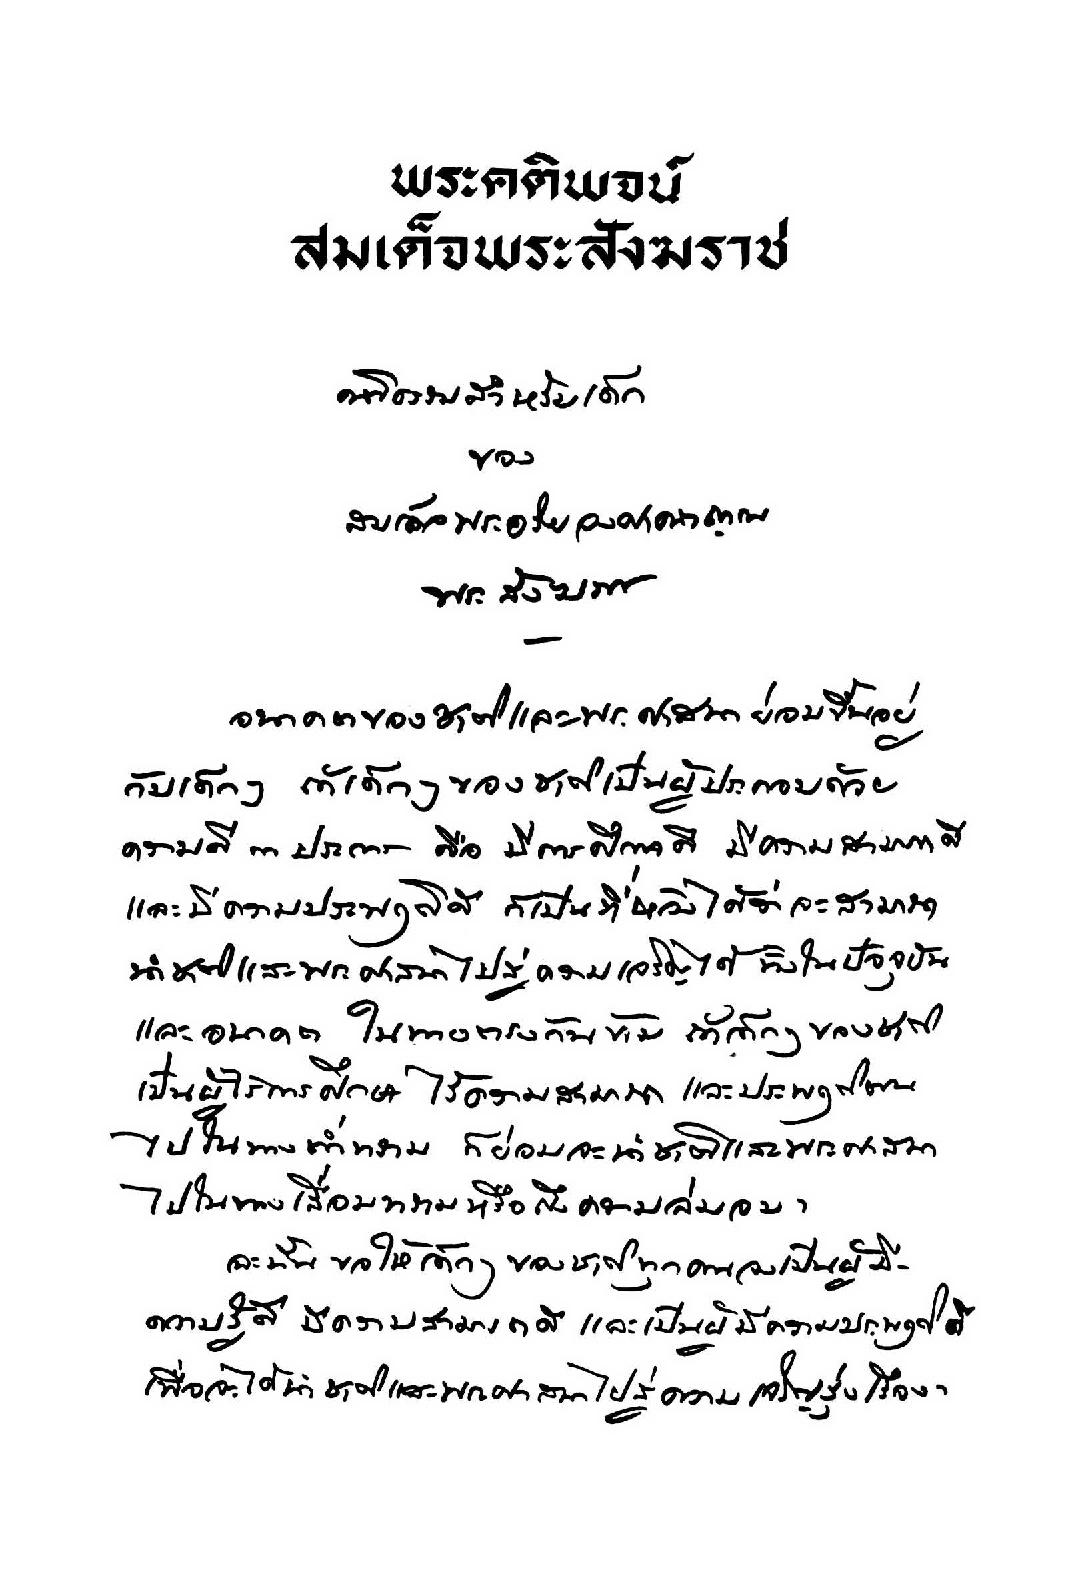 พระคติพจน์
สมเด็จพระสังฆราช
คติธรรมสำหรับเด็ก
ของ
สมเด็จพระอริยวงศาคตญาณ
พระสังฆราช
อนาคตของชาติและพระศาสนาย่อมขึ้นอยู่
กับเด็กๆ ถ้าเด็กๆ ของชาติเป็นผู้ประกอบด้วย
ความดี ๓ ประการ คือ มีการศึกษาดี มีความสามารถดี
และมีความประพฤติดี ก็เป็นที่หวังได้ว่าจะสามารถ
นำชาติและพระศาสนาไปสู่ความเจริญได้ ทั้งในปัจจุบัน
และอนาคต ในทางตรงกันข้าม ถ้าเด็กๆ ของชาติ
เป็นผู้ไร้การศึกษา ไร้ความสามารถ และประพฤติตน
ไปในทางต่ำทราม ก็ย่อมจะนำชาติและพระศาสนา
ไปในทางเสื่อมทรามหรือถึงความล่มจม ฯ
ฉะนั้น ขอให้เด็กๆ ของชาติทุกคนจงเป็นผู้มี-
ความรู้ดี มีความสามารถดี และเป็นผู้มีความประพฤติดี
เพื่อจะได้นำชาติและพระศาสนาไปสู่ความเจริญรุ่งเรือง ฯ